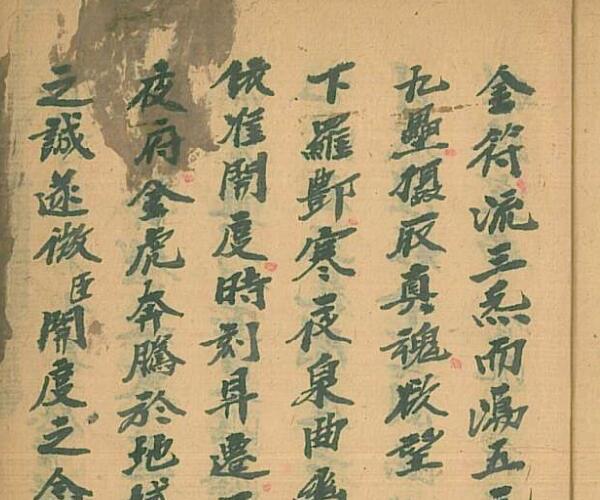 金符流三炁而瀉五
九壘攝取真魂欲望
下羅酆寒夜泉曲
依准開度時刻昇遷
夜府金虎奔騰於地
之誠遂微臣開度之令